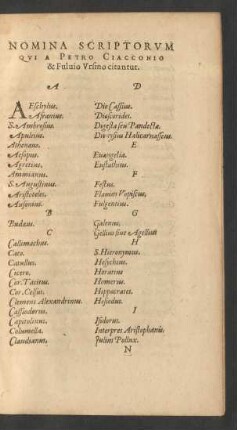 NOMINA SCRIPTORVM
QVI A PETRO CIACCONIO
& Fuluio Vrsino citantur.
A
AEschylus.
Afranius.
S. Ambrosius.
Apuleius.
Athenæus.
Aesopus.
Agretius.
Ammianus.
S. Augustinus.
Aristoteles.
Ausonius.
B
Budæus.
C
Callimachus.
Cato.
Catullus.
Cicero.
Cor. Tacitus.
Cor. Celsus.
Clemens Alexandrinus.
Cassiodorus.
Capitolinus.
Columella.
Claudianus.
D
Dio Cassius.
Dioscorides.
Digesta seu Pandectæ.
Dionysius Halicarnasseus.
E
Euangelia.
Eustathius.
F
Festus.
Flauius Vopiscus.
Fulgentius.
G
Galenus.
Gellius siue Agellius
H
S. Hieronymus.
Hesychius.
Horatius
Homerus.
Hippocrates.
Hesiodus.
I
Isidorus.
Interpres Aristophanis.
Iulius Pollux.
N